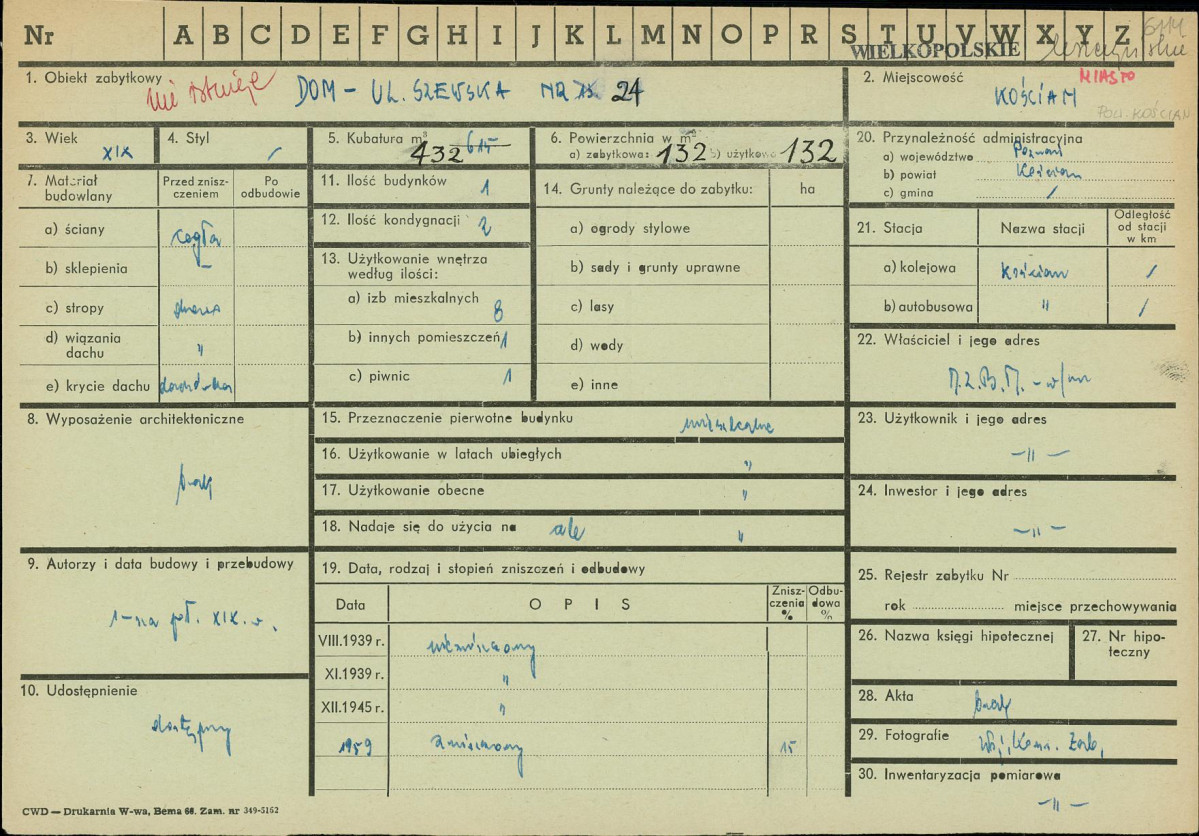 Nr A B C D E F G H I J K L M N O P R S T U V W X Y Z 6114
WIELKOPOLSKIE leszczyńskie
1. Obiekt zabytkowy
nie istnieje DOM - UL. SZEWSKA NR 24
2. Miejscowość MIASTO
KOŚCIAN
POW. KOŚCIAN
3. Wiek XIX
4. Styl /
5. Kubatura m³ 615 432
6. Powierzchnia w m²
a) zabytkowa: 132 b) użytkowa 132
20. Przynależność administracyjna
a) województwo Poznań
b) powiat Kościan
c) gmina /
7. Materiał budowlany
Przed zniszczeniem
Po odbudowie
a) ściany cegła
b) sklepienia –
c) stropy drewno
d) wiązania dachu "
e) krycie dachu dachówka
11. Ilość budynków 1
12. Ilość kondygnacji 2
13. Użytkowanie wnętrza według ilości:
a) izb mieszkalnych 8
b) innych pomieszczeń 1
c) piwnic 1
14. Grunty należące do zabytku: ha
a) ogrody stylowe
b) sady i grunty uprawne
c) lasy
d) wody
e) inne
21. Stacja Nazwa stacji Odległość od stacji w km
a) kolejowa Kościan /
b) autobusowa " /
22. Właściciel i jego adres
M.Z.B.M. - w/m
8. Wyposażenie architektoniczne
brak
15. Przeznaczenie pierwotne budynku mieszkalne
16. Użytkowanie w latach ubiegłych "
17. Użytkowanie obecne "
18. Nadaje się do użycia na cele "
23. Użytkownik i jego adres
– " –
24. Inwestor i jego adres
– " –
9. Autorzy i data budowy i przebudowy
1-sza poł. XIX w.
19. Data, rodzaj i stopień zniszczeń i odbudowy
Data OPIS Zniszczenia % Odbudowa %
VIII.1939 r. niezniszczony
XI.1939 r. "
XII.1945 r. "
1959 zniszczony 15
25. Rejestr zabytku Nr
rok miejsce przechowywania
26. Nazwa księgi hipotecznej
27. Nr hipoteczny
10. Udostępnienie
dostępny
28. Akta brak
29. Fotografie Woj. Kons. Zab.
30. Inwentaryzacja pomiarowa
– " –
CWD — Drukarnia W-wa, Bema 66. Zam. nr 349-5162